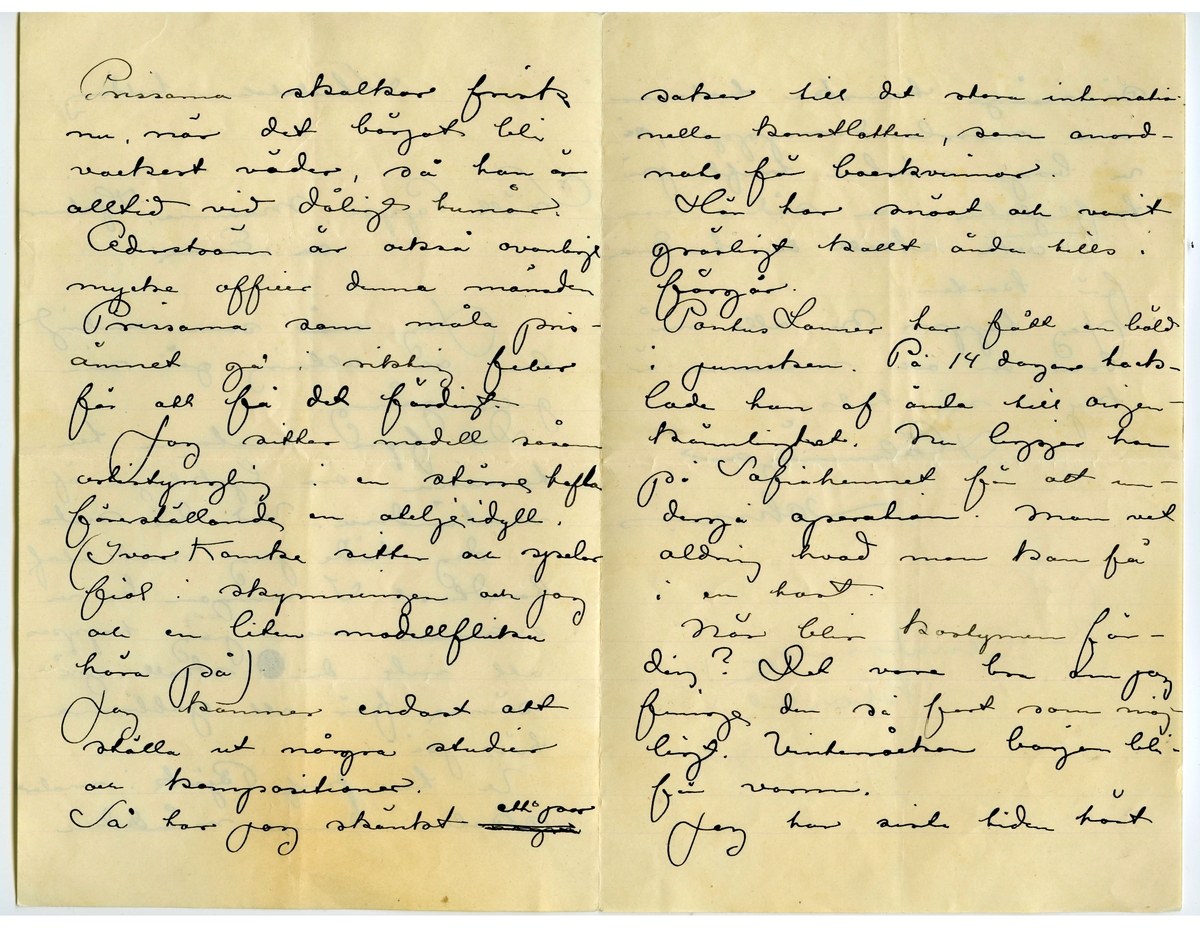 Prissarna skolkar friskt
nu, när det börjat bli
vackert väder, så han är
alltid vid dåligt humör.
Cederström är också ovanligt
mycke officer denna månaden
Prissarna som måla pris-
ämnet gå i riktig feber
för att få det färdigt.
Jag sitter modell såsom
artistyngling i en större tafla
föreställande en ateljéidyll.
(Ivar Kamke sitter och spelar
fiol i skymningen och jag
och en liten modellflicka
höra på)
Jag kommer endast att
ställa ut några studier
och kompositioner.
Så har jag skänkt ett par
saker till det stora internatio-
nella konstlotteri, som anord-
nats få boerkvinnor.
Här har snöat och varit
gräsligt kallt ända tills i
förgår.
Pontus Lanner har fått en böld
i rumsken. På 14 dagar hack-
lade han af ända till oigen-
känlighet. Nu ligger han
på Sofiahemmet för att un-
dergå operation. Man vet
aldrig hvad man kan få
i en hast.
När blir kostymen fär-
dig? Det vore bra om jag
finge den så fort som möj-
ligt. Vinterrocken börjar bli
för varm.
Jag har sista tiden hört